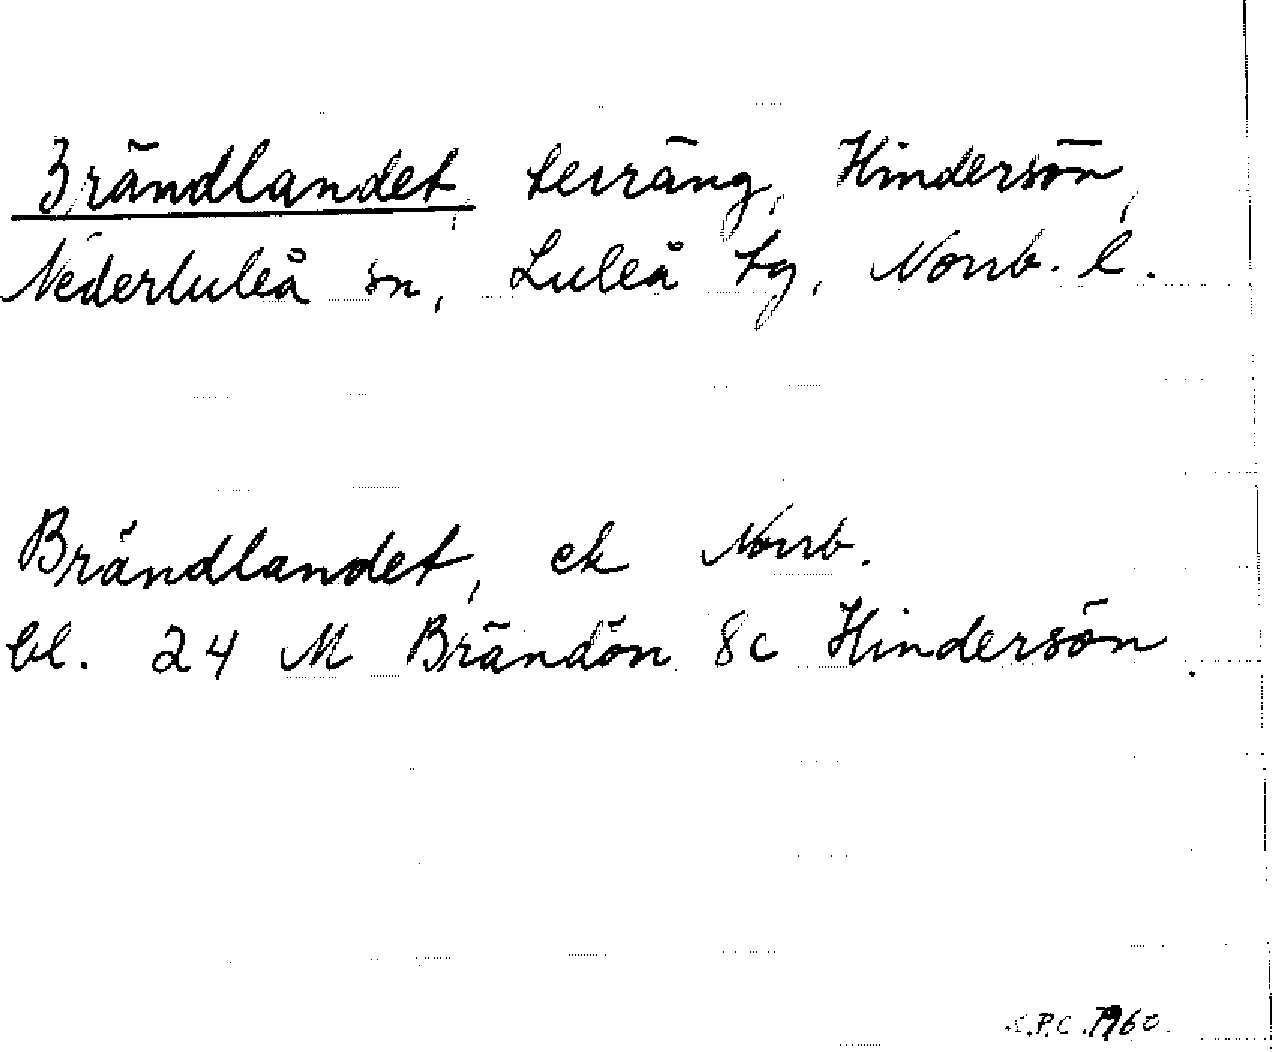 Brändlandet, terräng, Hindersön,
Nederluleå sn, Luleå tg, Norrb. l.
Brändlandet, ek Norrb.
bl. 24 M Brändön 8c Hindersön.
1960